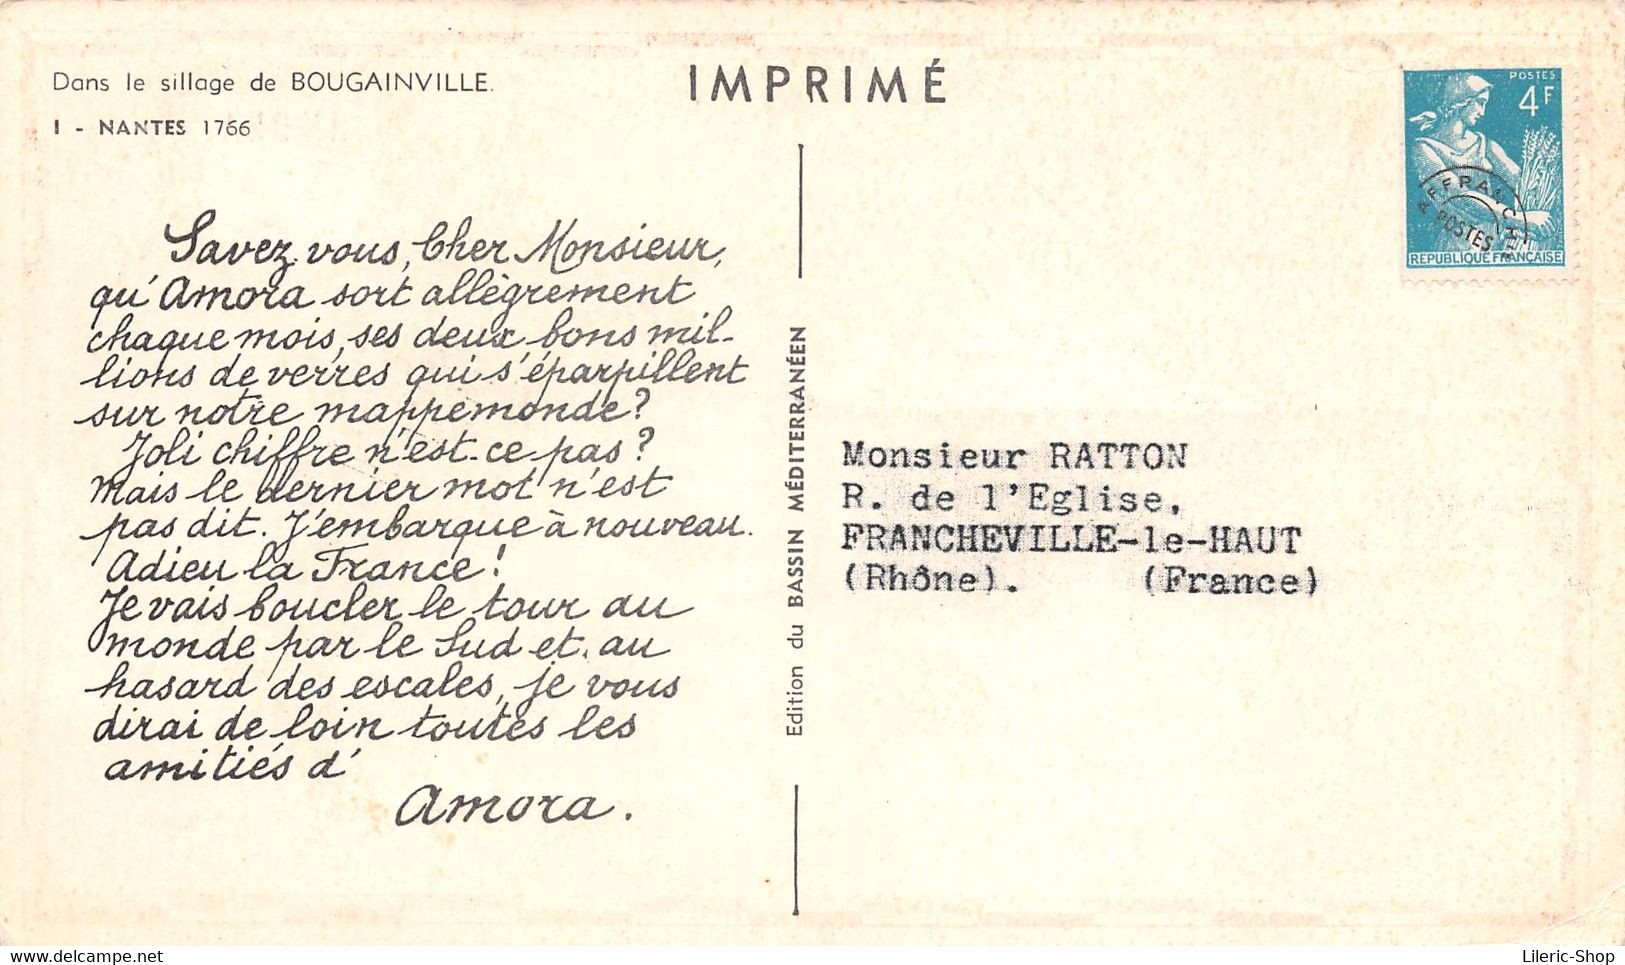 Dans le sillage de BOUGAINVILLE.
I - NANTES 1766
IMPRIMÉ
POSTES
4F
AFFRANCHTS
POSTES
REPUBLIQUE FRANÇAISE
Savez-vous, Cher Monsieur,
qu'Amora sort allègrement
chaque mois, ses deux bons mil-
lions de verres qui s'éparpillent
sur notre mappemonde?
Joli chiffre n'est-ce pas?
Mais le dernier mot n'est
pas dit. J'embarque à nouveau.
Adieu la France!
Je vais boucler le tour du
monde par le Sud et, au
hasard des escales, je vous
dirai de loin toutes les
amitiés d'
Amora.
Edition du BASSIN MÉDITERRANÉEN
Monsieur RATTON
R. de l'Eglise,
FRANCHEVILLE-le-HAUT
(Rhône). (France)
delcampe.net
Lileric-Shop